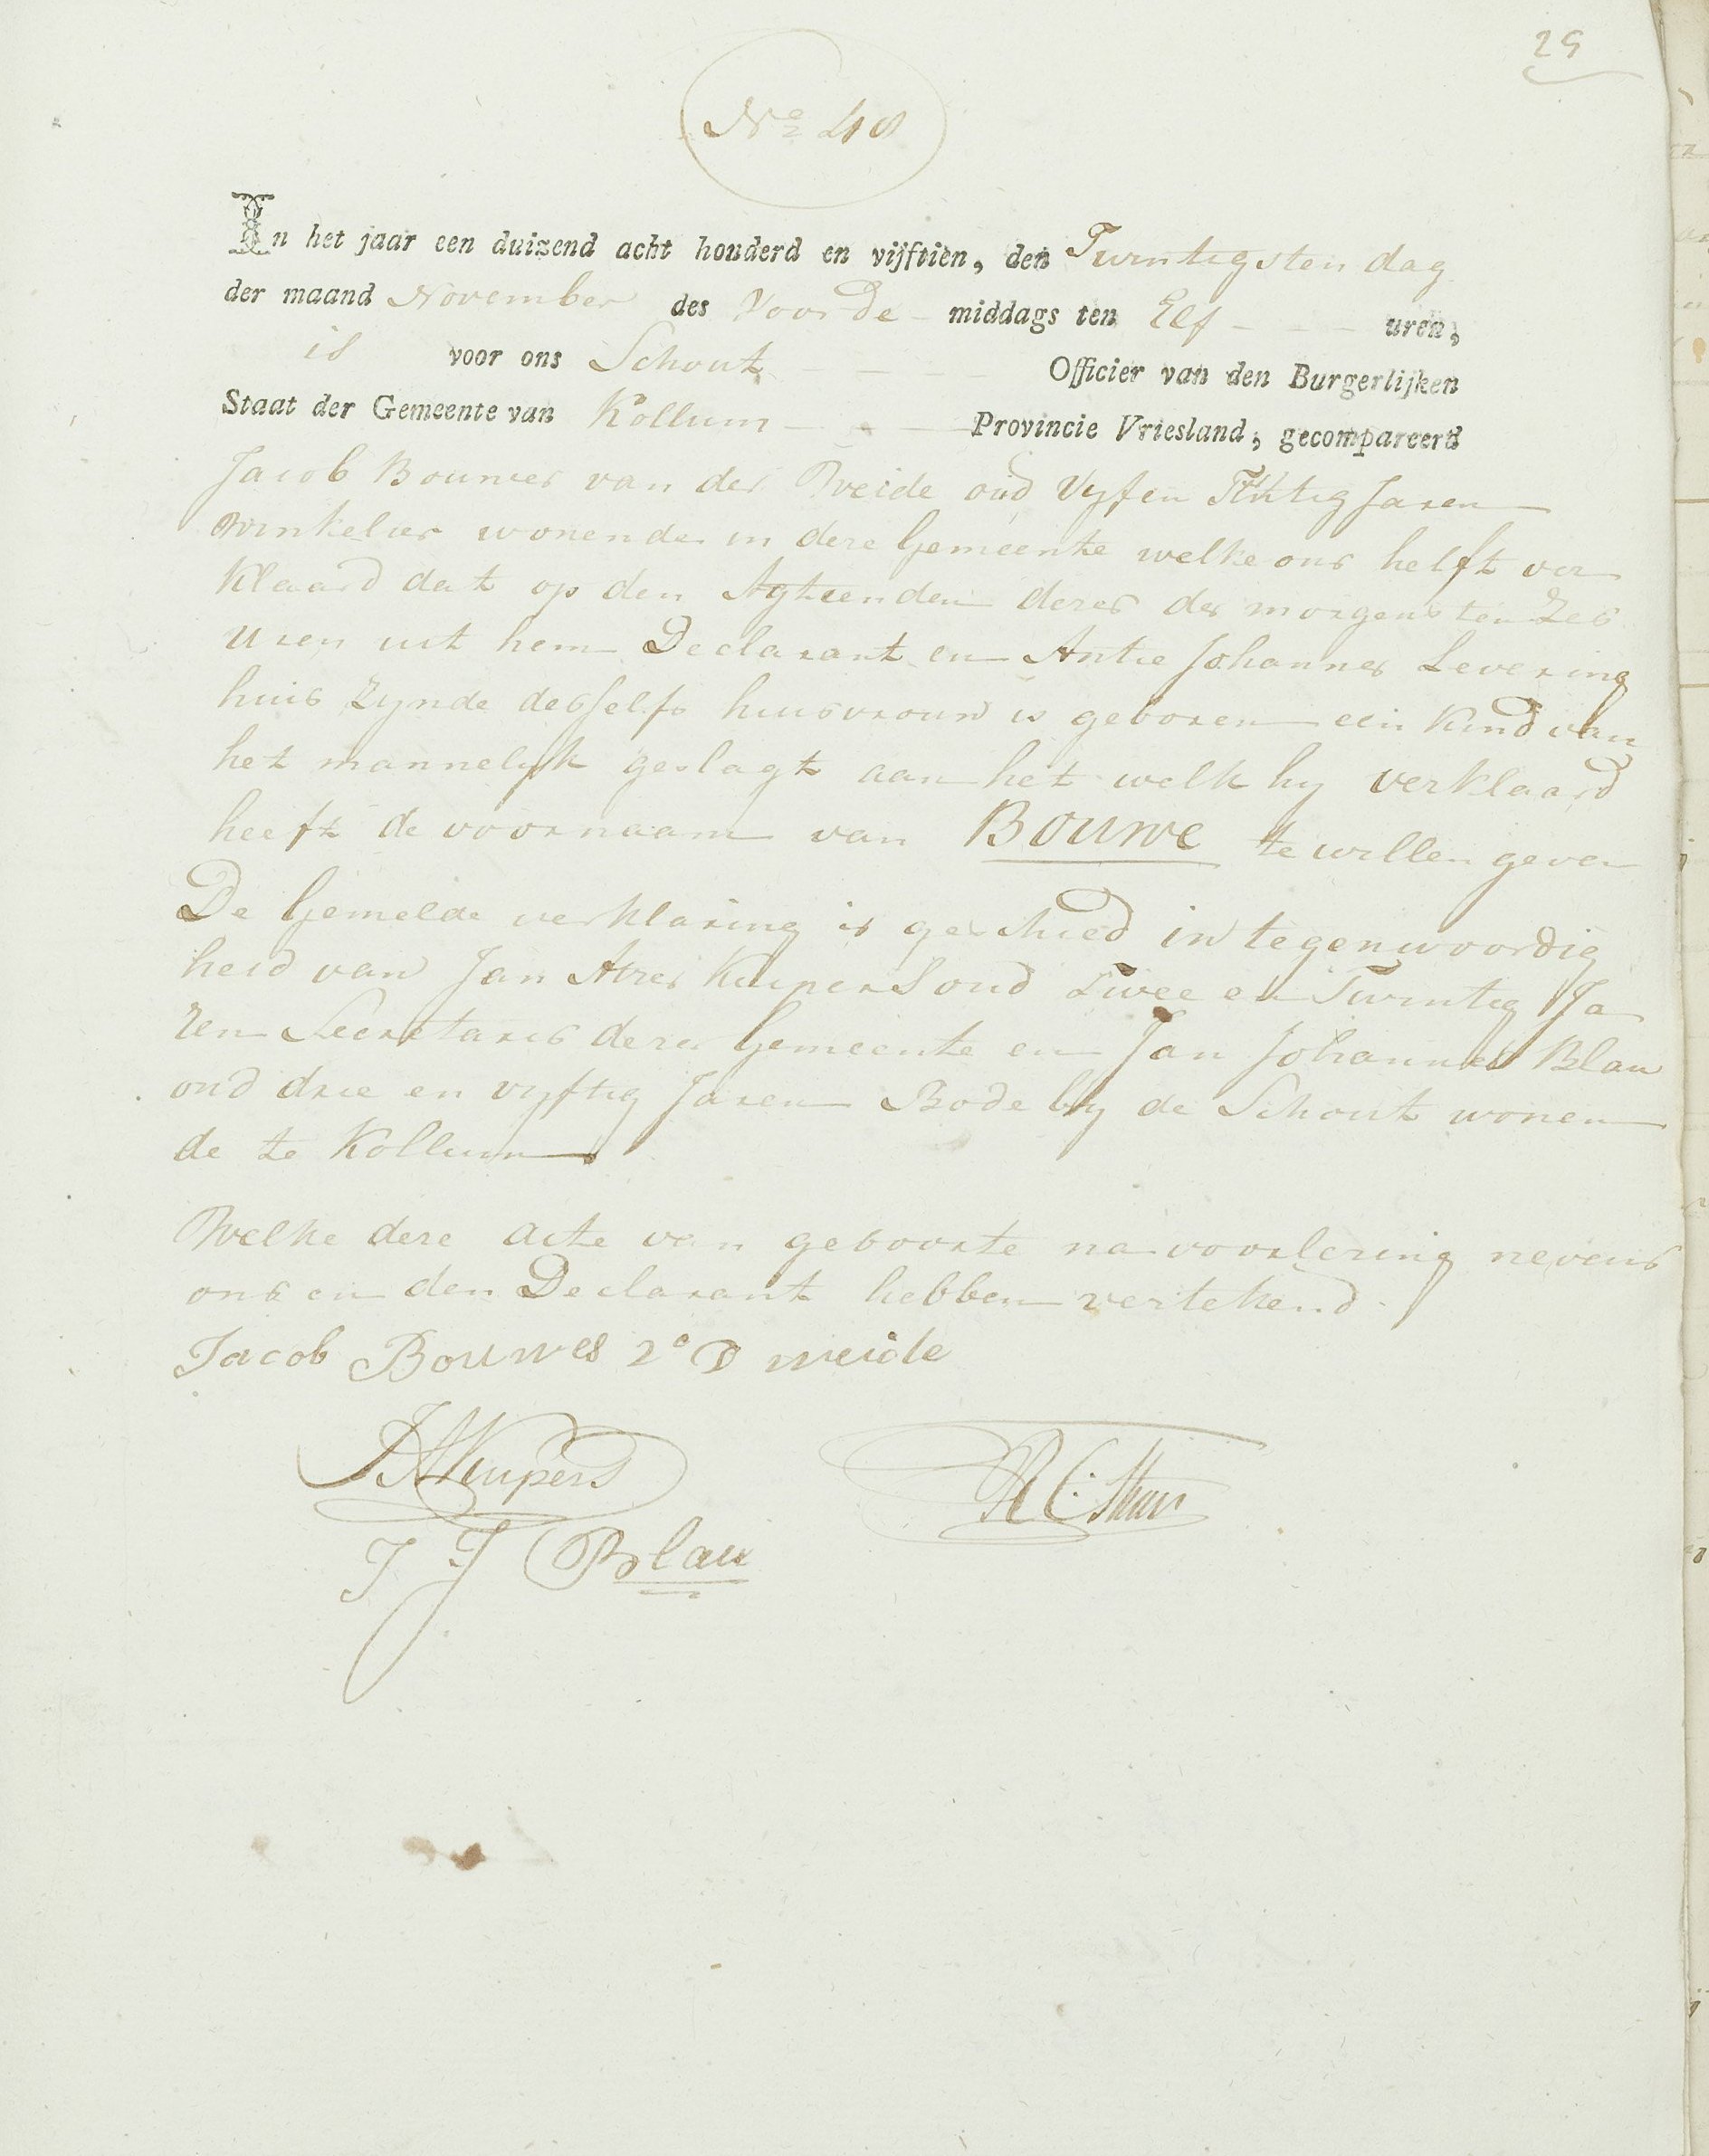 25
No 48
In het jaar een duizend acht honderd en vijftien, den Twintigsten dag
der maand November des Voorde middags ten Elf uren,
is voor ons Schout Officier van den Burgerlijken
Staat der Gemeente van Kollum Provincie Vriesland, gecompareerd
Jacob Bouwes van der Weide oud Vyf en Jaren
Winkelier wonende in deze Gemeente welke ons helft ver
klaard dat op den Agtienden dezer des morgens ten Zes
Uren uit hem Declarant en Antie Johannes Levering
huis Zynde desselfs huisvrouw is geboren een Kind van
het mannelyk geslagt aan het welk hy verklaard
heeft de voornaam van Bouwe te willen geven
De Gemelde verklaring is geschied in tegenwoordig
heid van Jan Kuipers oud Twee en Twintig Ja
ren Secretaris dezer Gemeente en Jan Johannes Blau
oud drie en vyftig Jaren Bode by de Schout wonen
de te Kollum
Welke deze acte van geboorte na voorlezing nevens
ons en den Declarant hebben vertekend
Jacob Bouwes D weide
JAKuipers
J J Blau